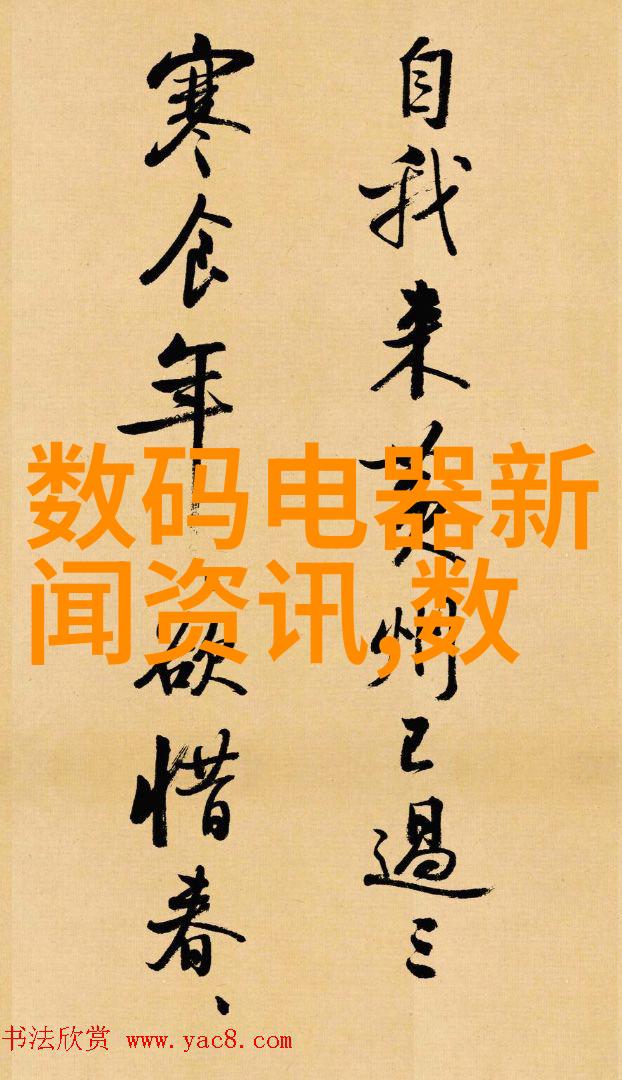 自我来黄州已過三
寒食年欲惜春、
数码电器新
闻资讯,数
书法欣赏 www.yac8.com